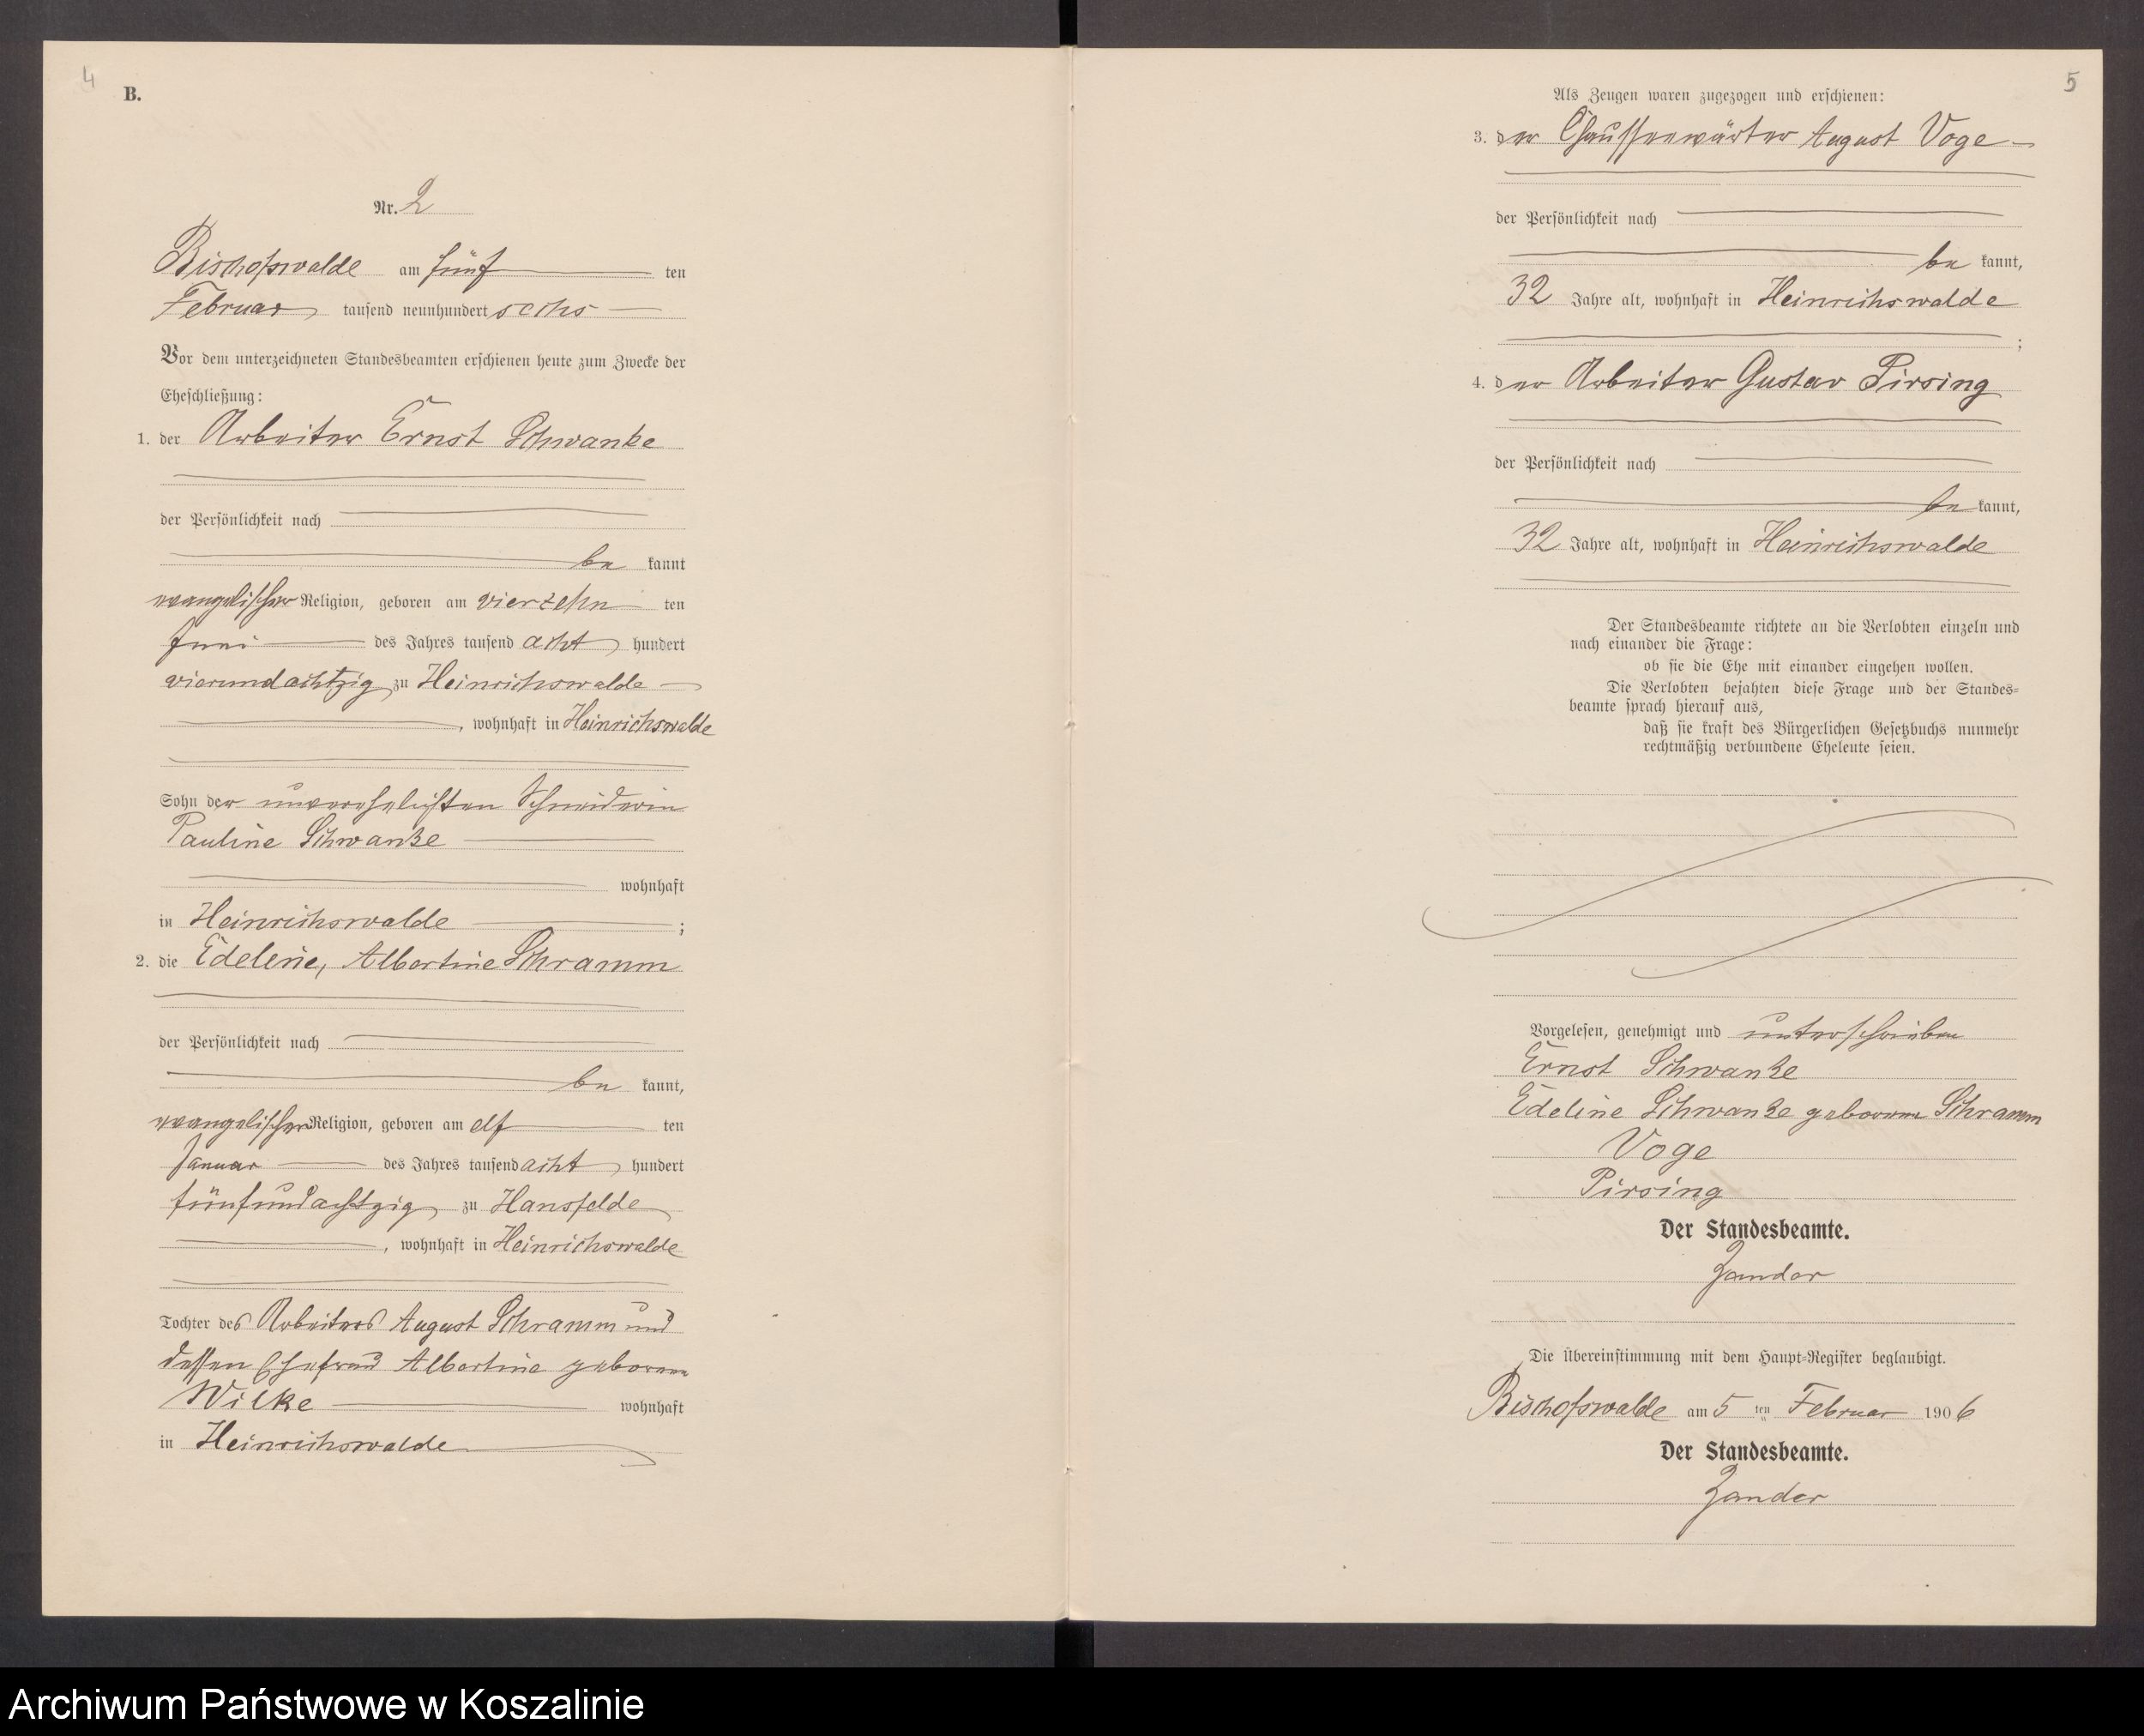 4
B.
Nr. 2
Bischofswalde am fünf ten
Februar tausend neunhundert sechs
Vor dem unterzeichneten Standesbeamten erschienen heute zum Zwecke der
Eheschließung:
1. der Arbeiter Ernst Schwanke
der Persönlichkeit nach
be kannt
evangelischer Religion, geboren am vierzehn ten
Juni des Jahres tausend acht hundert
vierundachtzig zu Heinrichswalde
, wohnhaft in Heinrichswalde
Sohn der unverehelichten Schneiderin
Pauline Schwanke
wohnhaft
in Heinrichswalde ;
2. die Edeline, Albertine Schramm
der Persönlichkeit nach
be kannt,
evangelischer Religion, geboren am elf ten
Januar des Jahres tausend acht hundert
fünfundachtzig zu Hansfelde
, wohnhaft in Heinrichswalde
Tochter des Arbeiters August Schramm und
dessen Ehefrau Albertine geborene
Wilke wohnhaft
in Heinrichswalde
5
Als Zeugen waren zugezogen und erschienen:
3. der Chausseewärter August Voge
der Persönlichkeit nach
be kannt,
32 Jahre alt, wohnhaft in Heinrichswalde
;
4. der Arbeiter Gustav Pirsing
der Persönlichkeit nach
be kannt,
32 Jahre alt, wohnhaft in Heinrichswalde
Der Standesbeamte richtete an die Verlobten einzeln und
nach einander die Frage:
ob sie die Ehe mit einander eingehen wollen.
Die Verlobten bejahten diese Frage und der Standes-
beamte sprach hierauf aus,
daß sie kraft des Bürgerlichen Gesetzbuchs nunmehr
rechtmäßig verbundene Eheleute seien.
Vorgelesen, genehmigt und unterschrieben
Ernst Schwanke
Edeline Schwanke geborene Schramm
Voge
Pirsing
Der Standesbeamte.
Zander
Die Übereinstimmung mit dem Haupt-Register beglaubigt.
Bischofswalde am 5 ten Februar 1906
Der Standesbeamte.
Zander
Archiwum Państwowe w Koszalinie